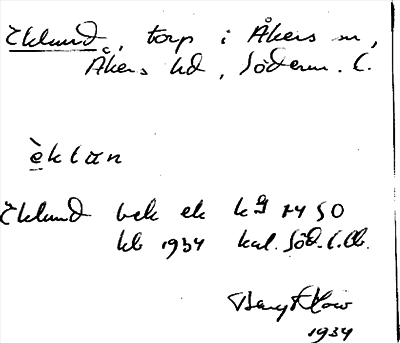 Eklund, torp i Åkers sn,
Åkers hd, Söderm. l.
èklɑn
Eklund bek ek kg 1450
hl 1934 kal. Söd. l.
1934